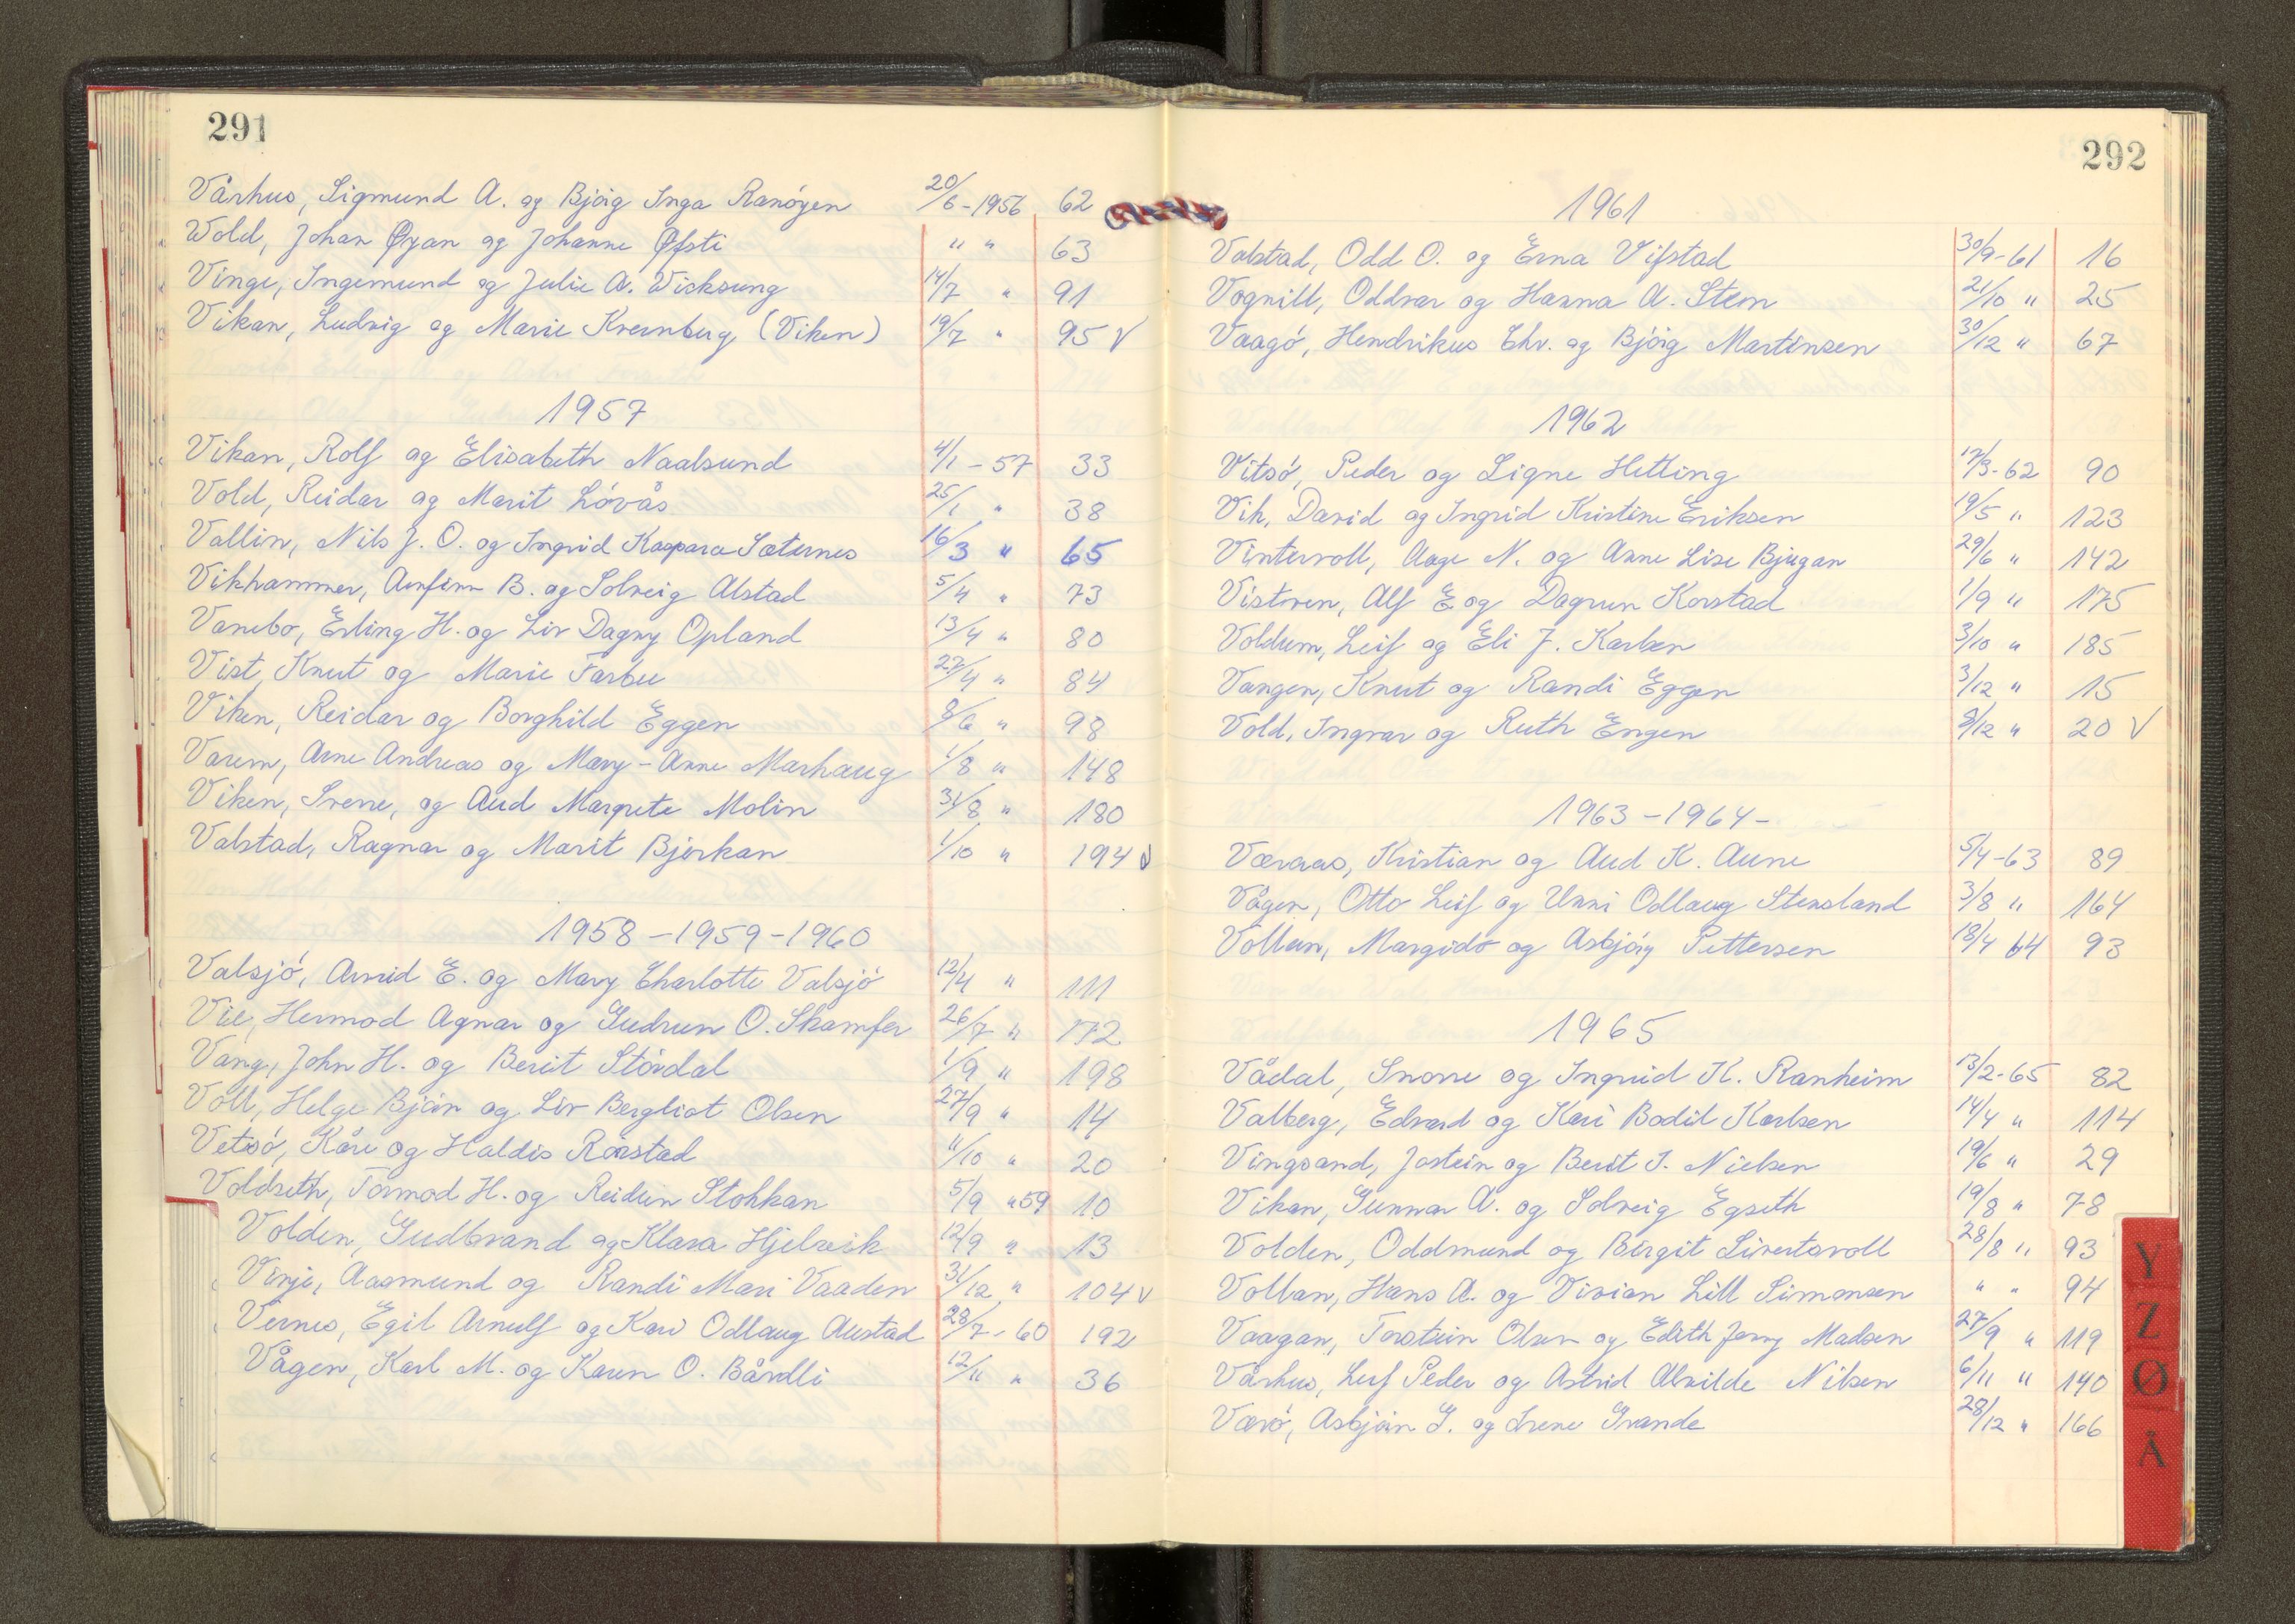 291
Vårhus, Sigmund A. og Bjørg Inga Ranøyen 20/6-1956 62
Wold, Johan Øyan og Johanne Øfsti " " 63
Vinge, Ingemund og Julie A. Wicksung 14/7 " 91
Vikan, Ludvig og Marie Kvernberg (Viken) 19/7 " 95 V
1957
Vikan, Rolf og Elisabeth Naalsund 4/1-57 33
Vold, Reidar og Marit Løvås 25/1 " 38
Vallin, Nils J. O. og Ingrid Kaspara Sæternes 16/3 " 65
Vikhammer, Arnfinn B. og Solveig Alstad 5/4 " 73
Vanebo, Erling H. og Liv Dagny Opland 13/4 " 80
Vist, Knut og Marie Farbu 27/4 " 84
Viken, Reidar og Borghild Eggen 8/6 " 98
Varem, Arne Andreas og Mary-Anne Marhaug 1/8 " 148
Viken, Sverre, og Aud Margrete Molin 31/8 " 180
Valstad, Ragnar og Marit Bjerkan 1/10 " 194 V
1958-1959-1960
Valsjó, Arvid E. og Mary Charlotte Valsjó 12/4 " 111
Vie, Hermod Agnar og Gudrun O. Skamfer 26/7 " 172
Vang, John H. og Berit Stördal 1/9 " 198
Voll, Helge Bjørn og Liv Bergliot Olsen 27/9 " 14
Vetsó, Kåre og Haldis Rørstad 11/10 " 20
Voldseth, Tormod H. og Reidun Stokkan 5/9 " 59 10
Volden, Gudbrand og Klara Hjelvik 12/9 " 13
Vinje, Aasmund og Randi Mari Vaaden 31/12 " 104 V
Vernes, Egil Arnulf og Kari Odlaug Austad 28/7-60 192
Vågen, Karl M. og Karen O. Bårdli 12/11 " 36
292
1961
Valstad, Odd O. og Erna Vifstad 30/9-61 16
Vognill, Oddvar og Hanna A. Stem 21/10 " 25
Vaagó, Hendrikus Chr. og Bjørg Martinsen 30/12 " 67
1962
Vitsó, Peder og Signe Hetling 17/3-62 90
Vik, David og Ingrid Kristine Eriksen 19/5 " 123
Vintervoll, Aage N. og Anne Lise Bjugan 29/6 " 142
Vistven, Alf E. og Dagrun Korstad 1/9 " 175
Voldum, Leif og Eli J. Karlsen 3/10 " 185
Vangen, Knut og Randi Eggen 3/12 " 15
Vold, Ingvar og Ruth Engen 8/12 " 20 V
1963-1964-
Væraas, Kristian og Aud K. Aune 5/4-63 89
Vågen, Otto Leif og Unni Odlaug Stensland 3/8 " 164
Vollan, Margido og Asbjørg Pettersen 18/4 64 93
1965
Vådal, Snorre og Ingrid K. Ranheim 13/2-65 82
Valberg, Edvard og Kari Bodil Karlsen 14/4 " 114
Vingsand, Jostein og Berit I. Nielsen 19/6 " 29
Vikan, Gunnar A. og Solveig Egseth 19/8 " 78
Volden, Oddmund og Birgit Sivertsvoll 28/8 " 93
Vollan, Hans A. og Vivian Lill Simonsen " " 94
Vaagan, Torstein Olsen og Edith Jenny Madsen 27/9 " 119
Vårhus, Leif Peder og Astrid Alvilde Nilsen 6/11 " 140
Værö, Asbjørn G. og Irene Grande 28/12 " 166
Y
Z
Ø
Å